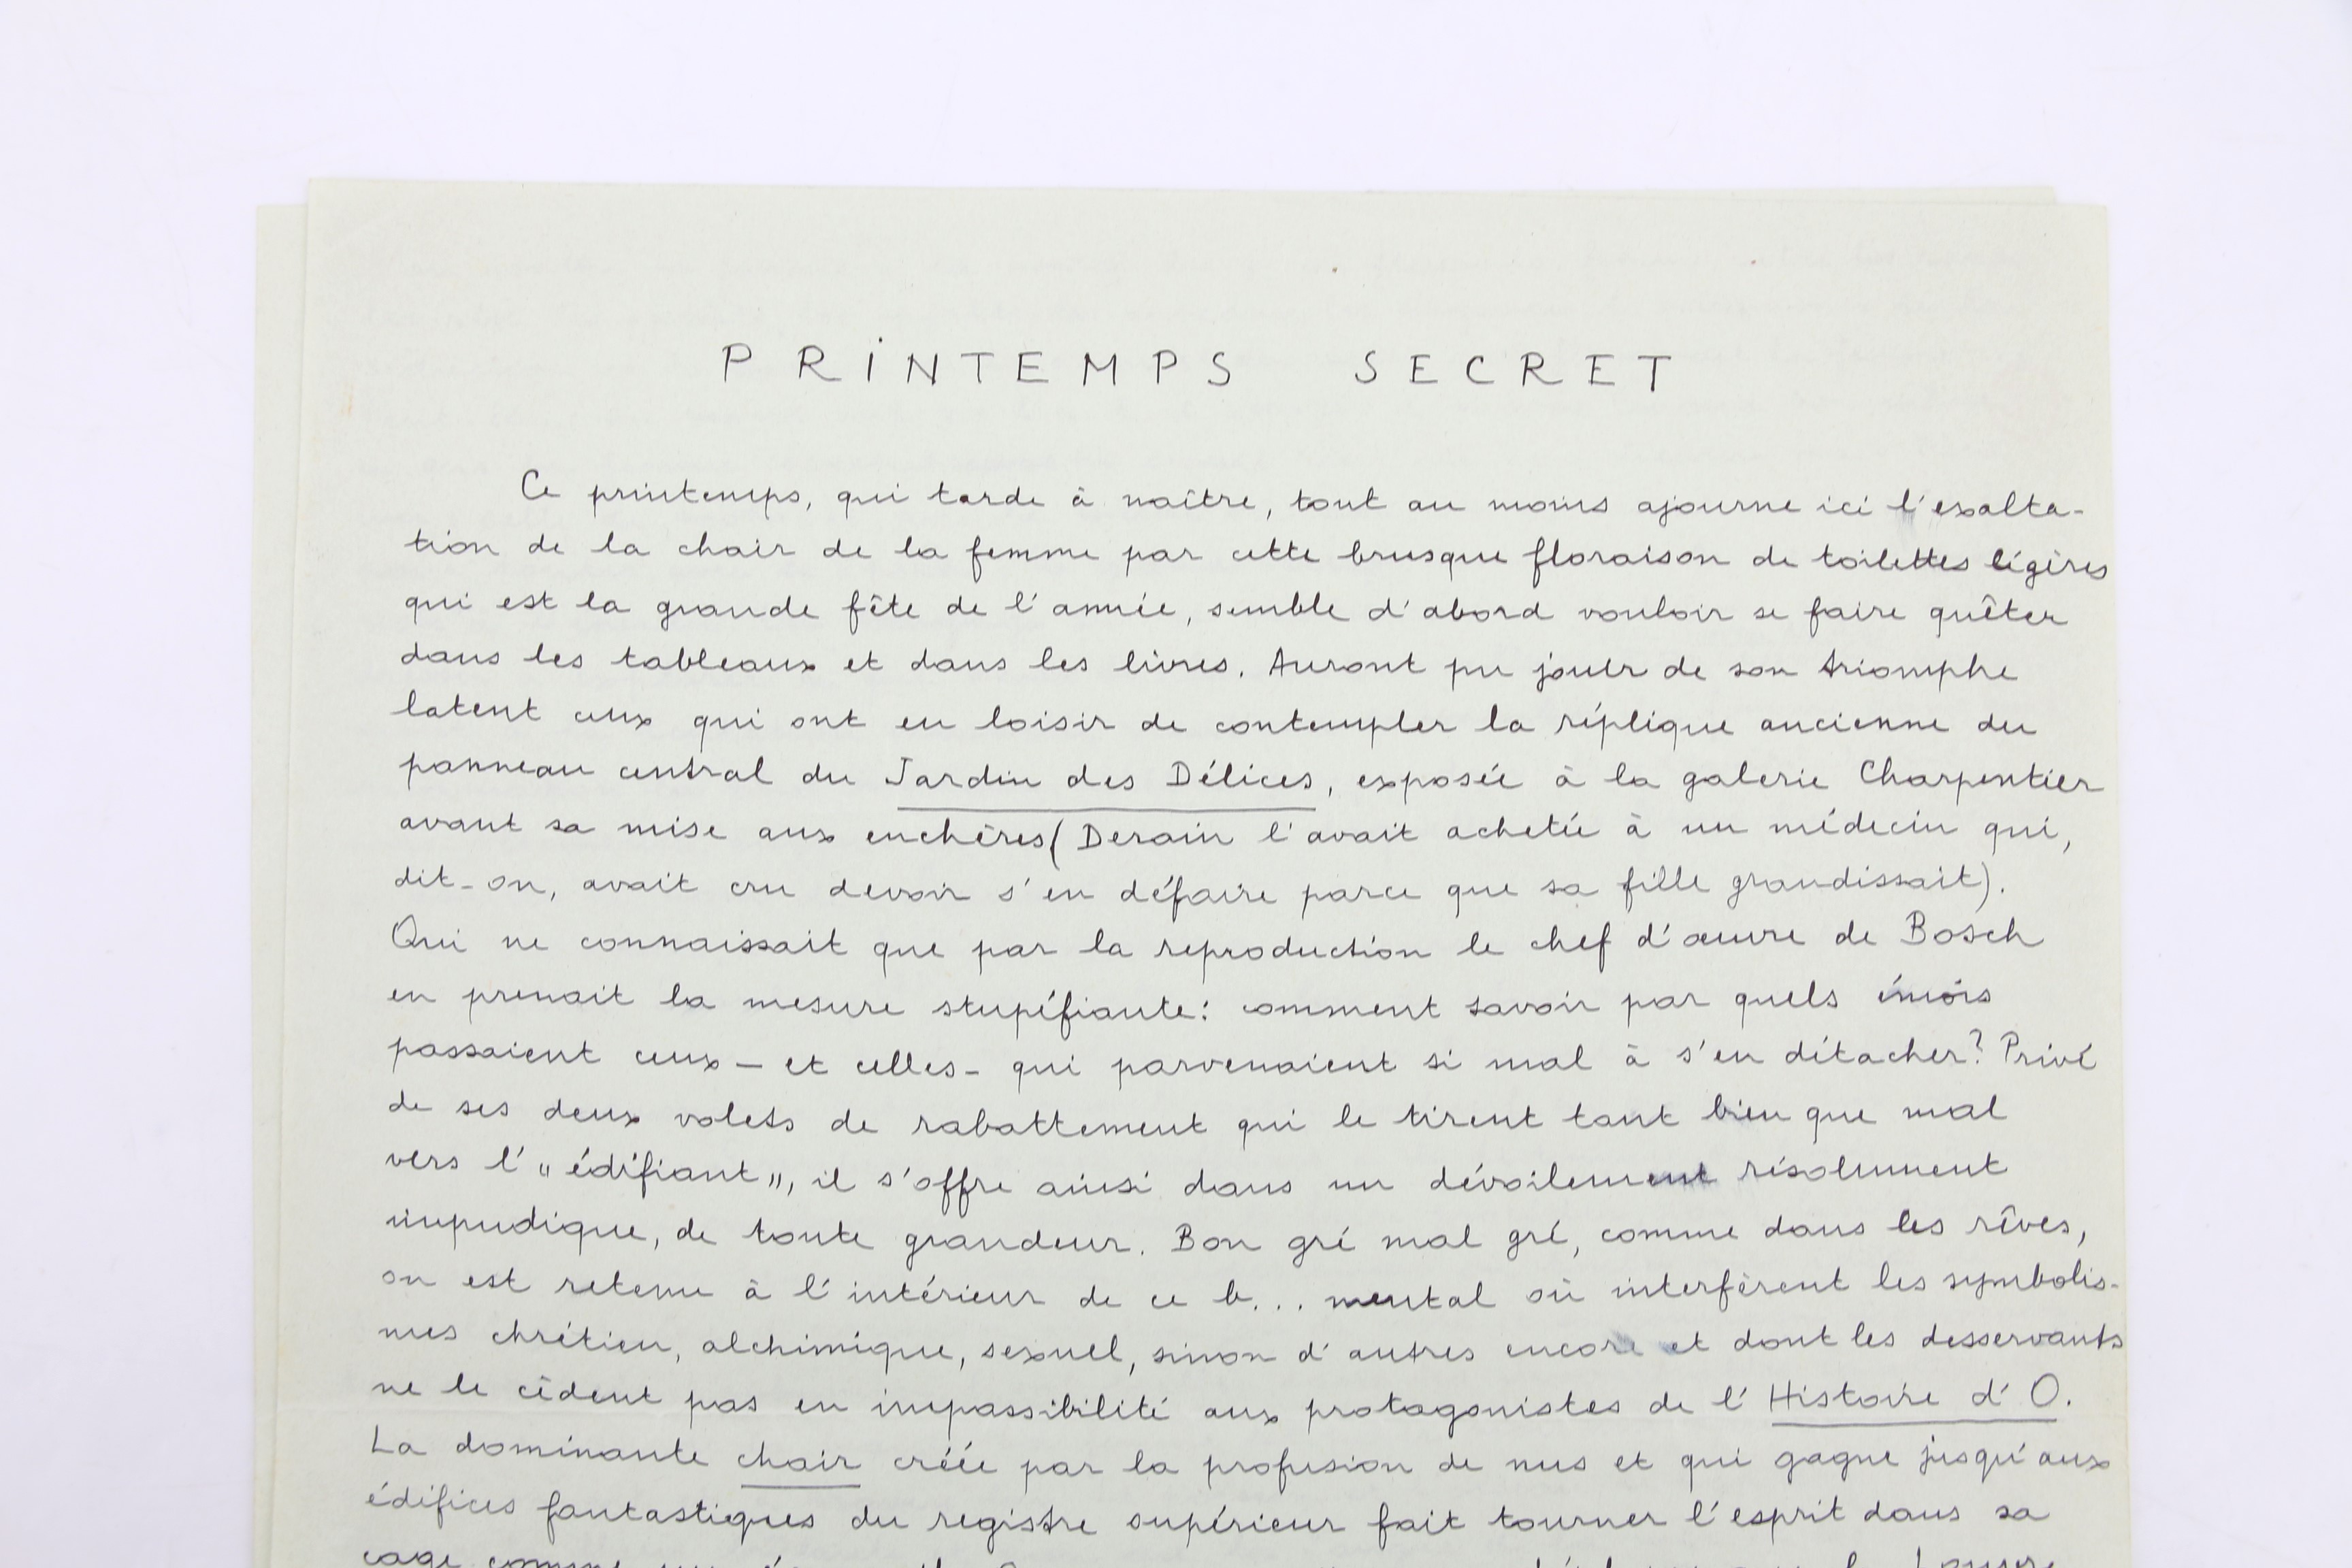 PRINTEMPS SECRET
Ce printemps, qui tarde à naître, tout au moins ajourne ici l'exalta-
tion de la chair de la femme par cette brusque floraison de toilettes légères
qui est la grande fête de l'année, semble d'abord vouloir se faire quêter
dans les tableaux et dans les livres. Auront pu jouir de son triomphe
latent ceux qui ont eu loisir de contempler la réplique ancienne du
panneau central du Jardin des Délices, exposée à la galerie Charpentier
avant sa mise aux enchères (Derain l'avait achetée à un médecin qui,
dit-on, avait cru devoir s'en défaire parce que sa fille grandissait).
Qui ne connaissait que par la reproduction le chef d'œuvre de Bosch
en prenait la mesure stupéfiante: comment savoir par quels émois
passaient ceux — et celles — qui parvenaient si mal à s'en détacher? Privé
de ses deux volets de rabattement qui le tirent tant bien que mal
vers l'"édifiant", il s'offre ainsi dans un dévoilement résolument
impudique, de toute grandeur. Bon gré mal gré, comme dans les rêves,
on est retenu à l'intérieur de ce b... mental où interfèrent les symbolis-
mes chrétien, alchimique, sexuel, sinon d'autres encore et dont les desservants
ne le cèdent pas en impassibilité aux protagonistes de l'Histoire d'O.
La dominante chair créée par la profusion de nus et qui gagne jusqu'aux
édifices fantastiques du registre supérieur fait tourner l'esprit dans sa
cage comme